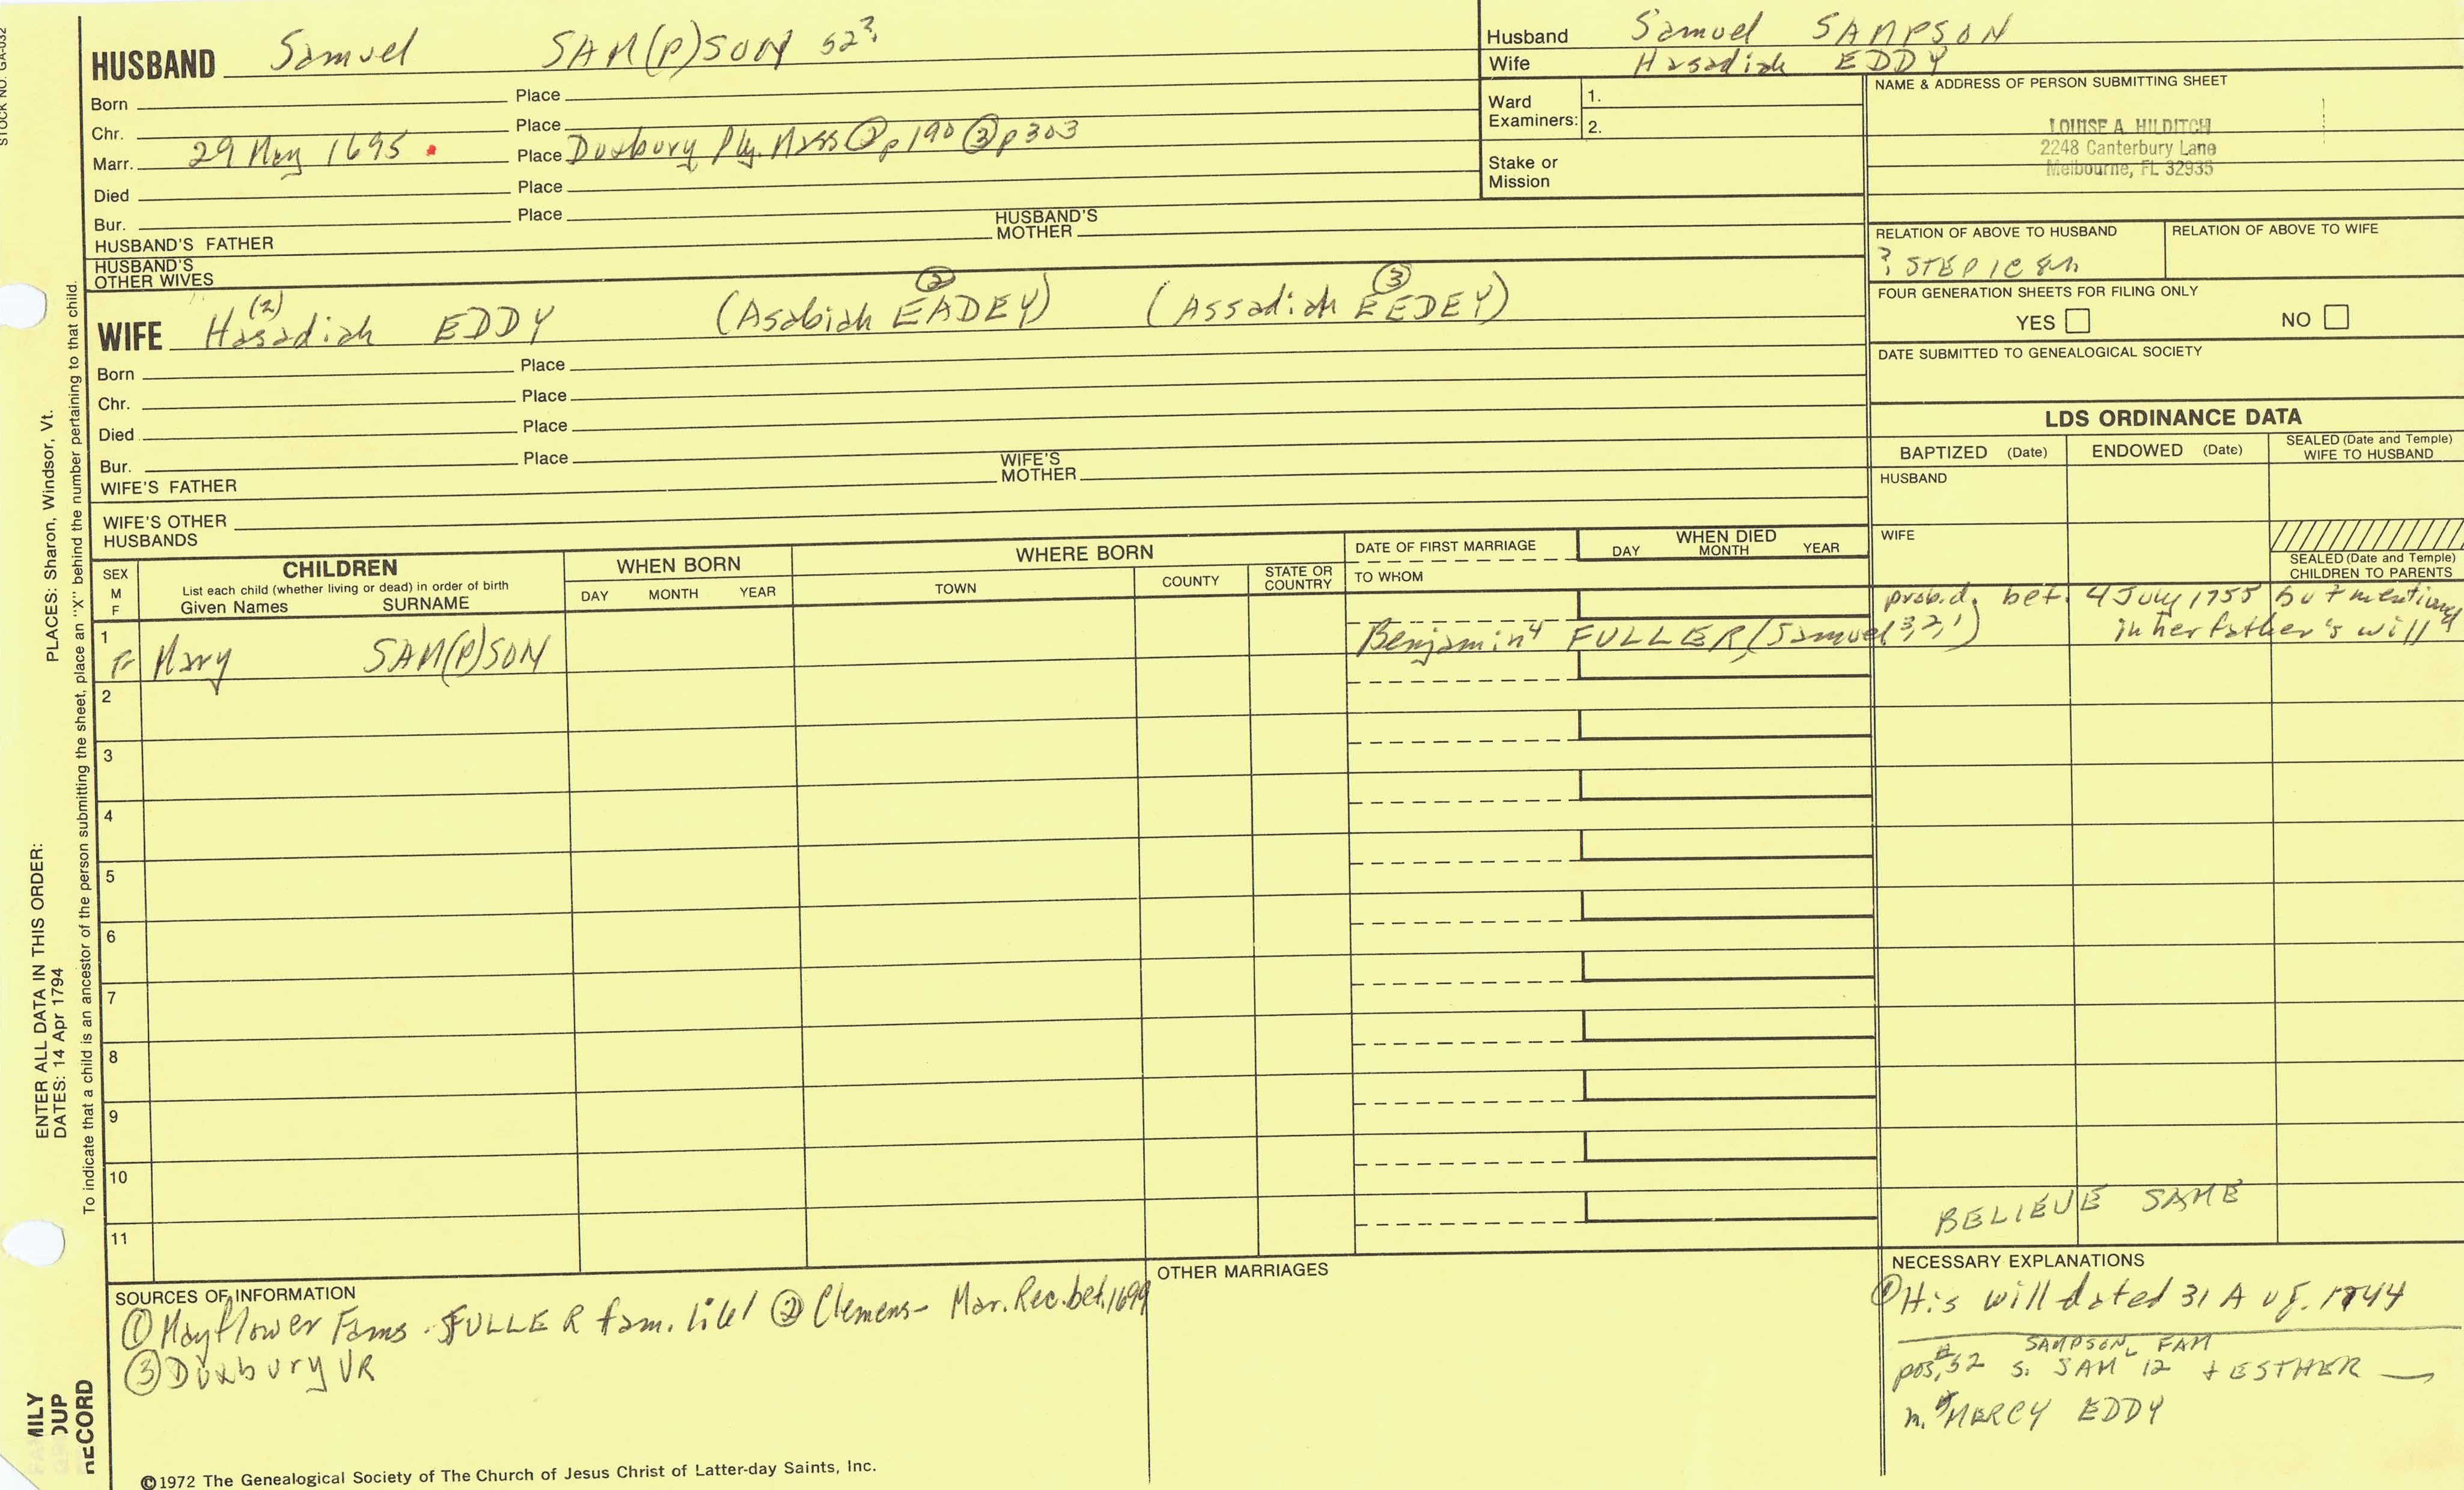 STOCK NO. GA-032
HUSBAND Samuel SAM(P)SON 52?
Born Place
Chr. Place
Marr. 29 May 1695 Place Duxbury Ply. Mass ② p190 ③ p303
Died Place
Bur. Place
HUSBAND'S FATHER HUSBAND'S MOTHER
HUSBAND'S OTHER WIVES
Husband Samuel SAMPSON
Wife Hasadiah EDDY
Ward Examiners: 1.
2.
Stake or Mission
NAME & ADDRESS OF PERSON SUBMITTING SHEET
LOUISE A. HILDITCH
2248 Canterbury Lane
Melbourne, FL 32935
RELATION OF ABOVE TO HUSBAND RELATION OF ABOVE TO WIFE
?
FOUR GENERATION SHEETS FOR FILING ONLY
YES NO
DATE SUBMITTED TO GENEALOGICAL SOCIETY
(2) ② ③
WIFE Hasadiah EDDY (Asabiah EADEY) (Assadiah EEDEY)
Born Place
Chr. Place
Died Place
Bur. Place
WIFE'S FATHER WIFE'S MOTHER
WIFE'S OTHER HUSBANDS
LDS ORDINANCE DATA
BAPTIZED (Date) ENDOWED (Date) SEALED (Date and Temple) WIFE TO HUSBAND
HUSBAND
WIFE
SEALED (Date and Temple) CHILDREN TO PARENTS
SEX M F
CHILDREN
List each child (whether living or dead) in order of birth
Given Names SURNAME
WHEN BORN
DAY MONTH YEAR
WHERE BORN
TOWN COUNTY STATE OR COUNTRY
DATE OF FIRST MARRIAGE
TO WHOM
WHEN DIED
DAY MONTH YEAR
prob. d. bet. 4 July 1755 but mentioned
in her father's will
1 F Mary SAM(P)SON Benjamin⁴ FULLER (Samuel ³,²,¹)
2
3
4
5
6
7
8
9
10
11
BELIEVE SAME
SOURCES OF INFORMATION
① Mayflower Fams. FULLER fam. ② Clemens - Mar. Rec. bef. 1699
③ Duxbury VR
OTHER MARRIAGES
NECESSARY EXPLANATIONS
① His will dated 31 Aug. 1744
SAMPSON FAM
pos. #52 s. SAM 12 + ESTHER —
m. MERCY EDDY
©1972 The Genealogical Society of The Church of Jesus Christ of Latter-day Saints, Inc.
ENTER ALL DATA IN THIS ORDER:
DATES: 14 Apr 1794
PLACES: Sharon, Windsor, Vt.
To indicate that a child is an ancestor of the person submitting the sheet, place an "X" behind the number pertaining to that child.
FAMILY
GROUP
RECORD